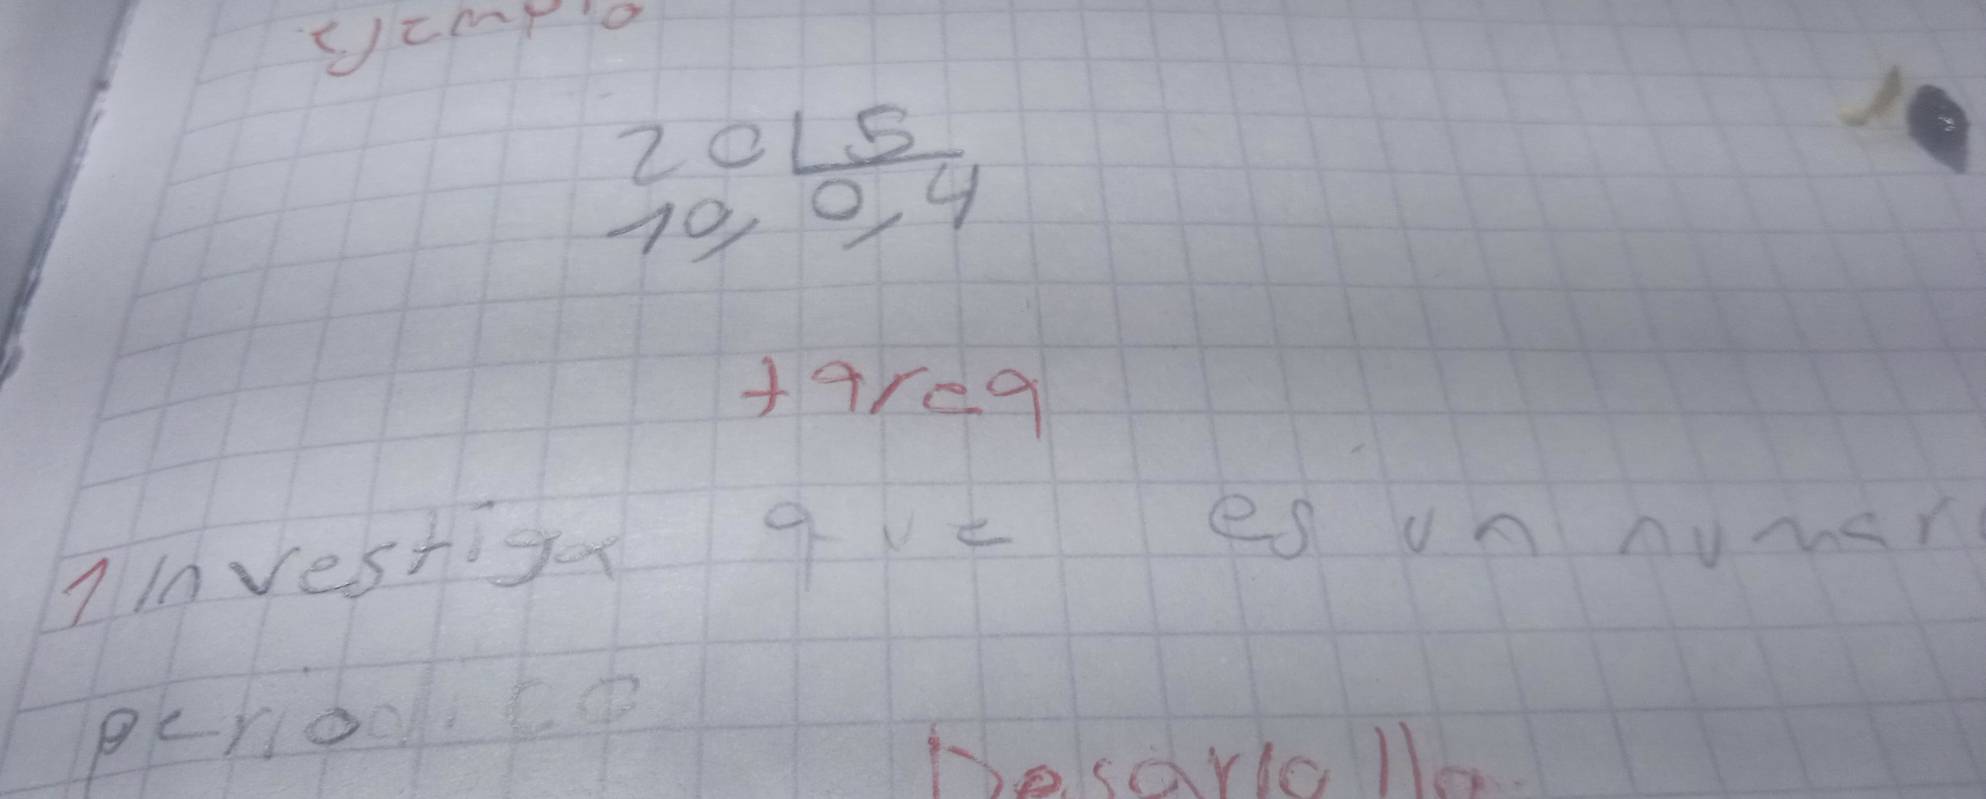 ejemplo
20 5
10, 0,4
tarea
1 Investiga que es un numer
periodico
Desarrollo